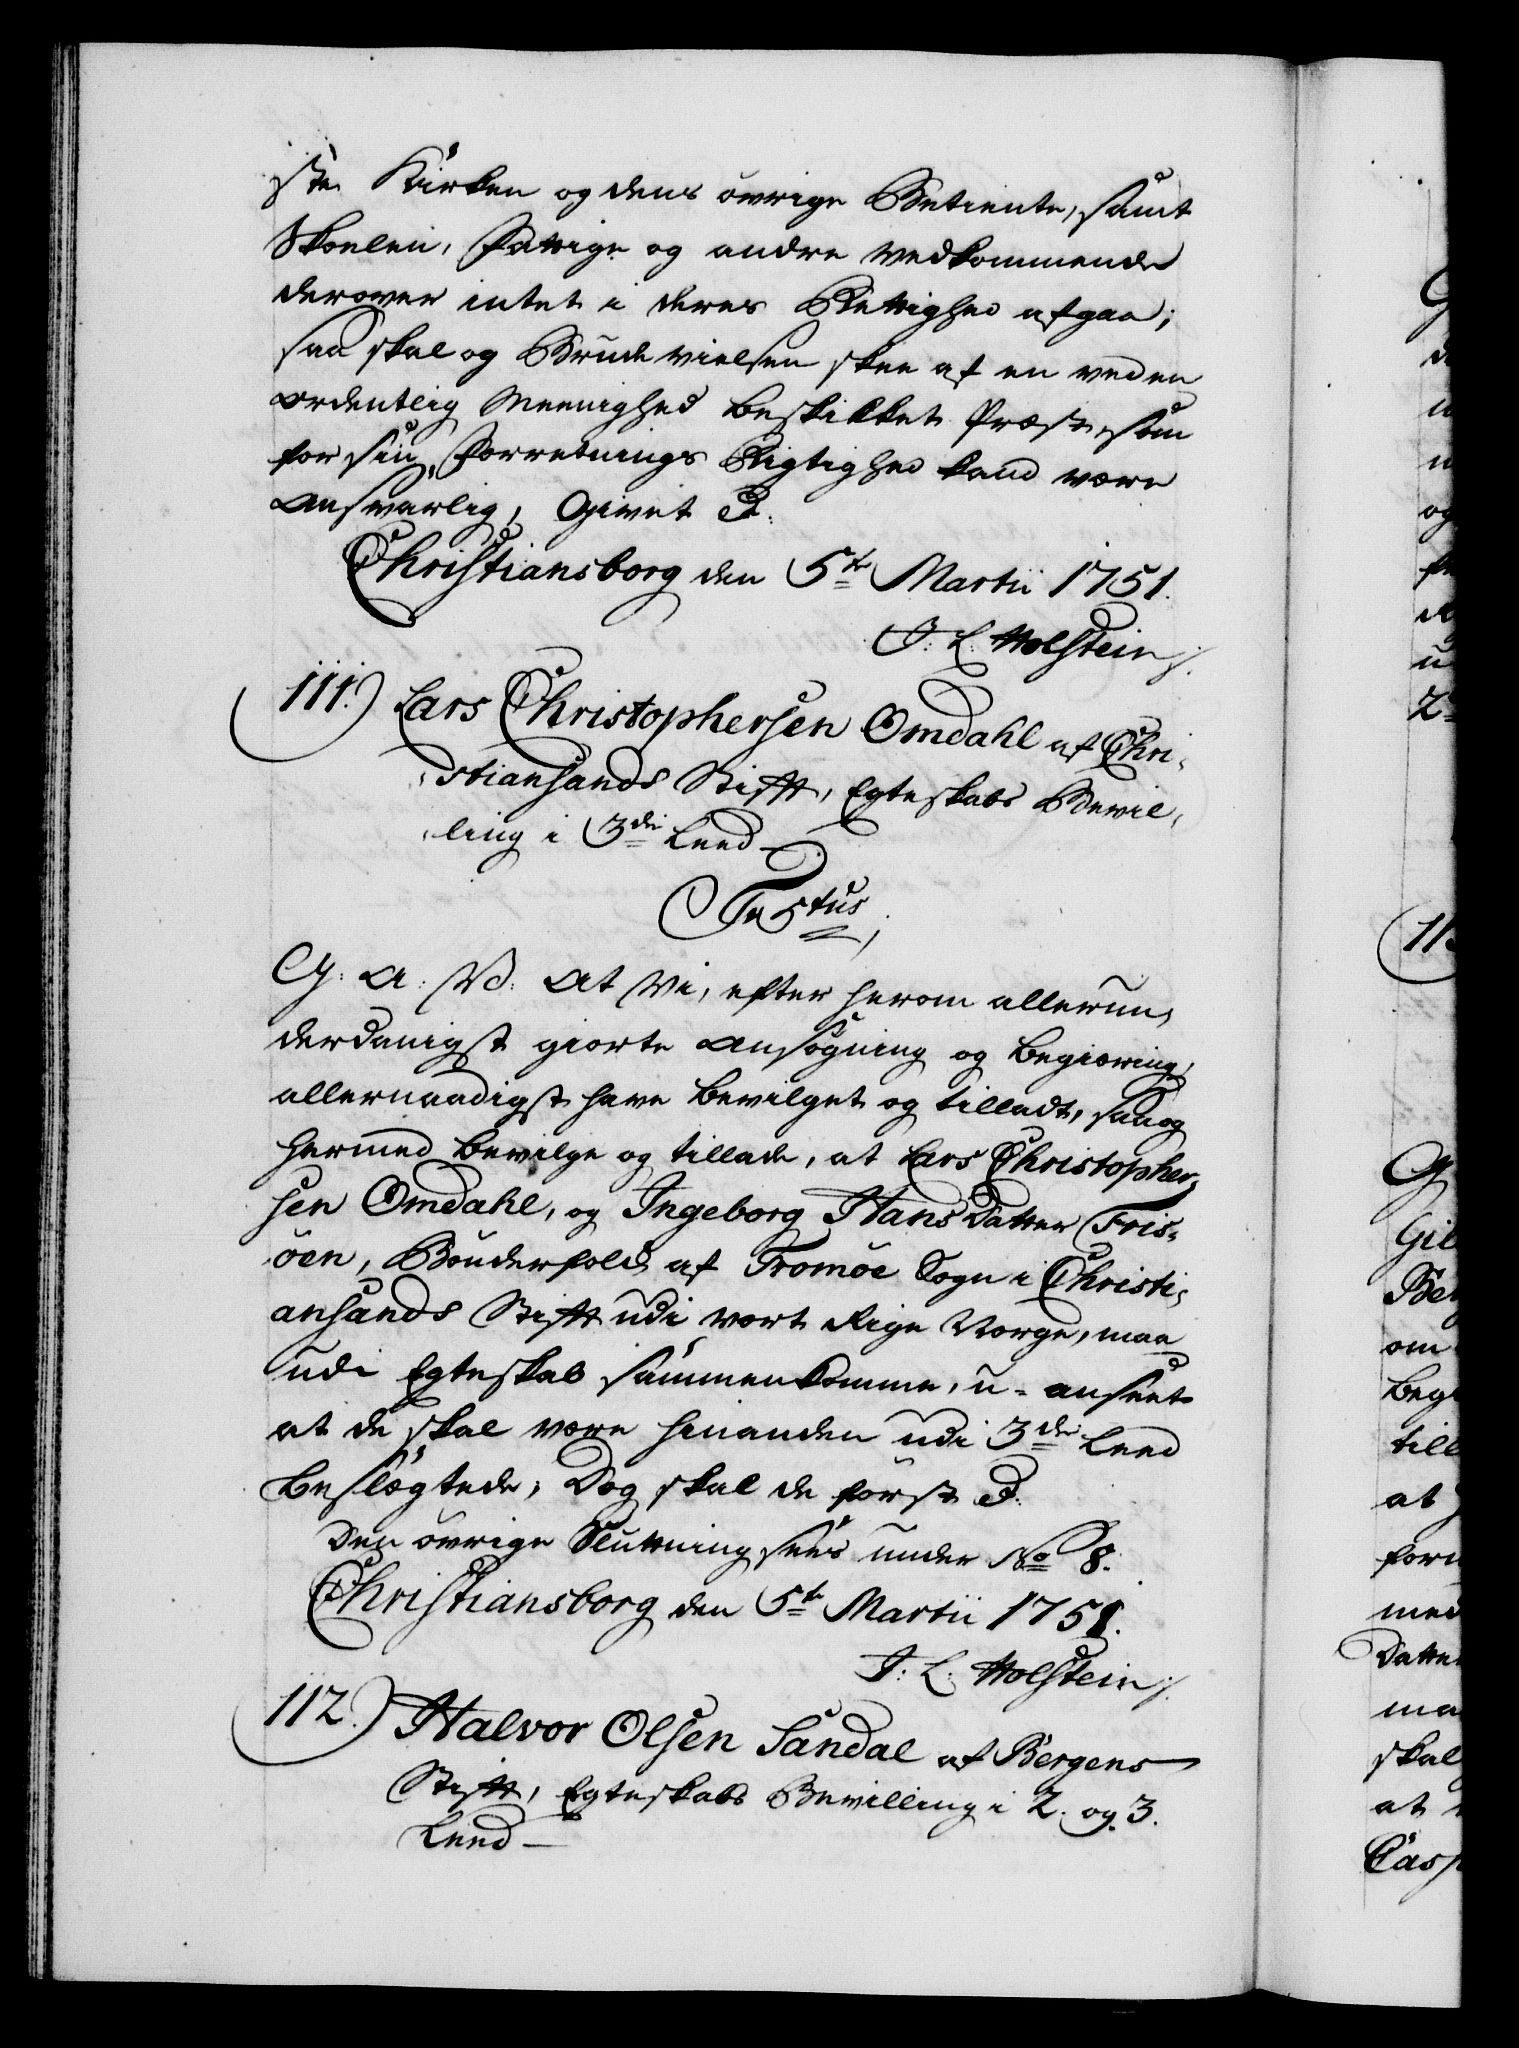 ste Kirken og dens övrige Betiente, samt
Skoelen, Fattige og andre vedkommende
derover intet i deres Rettighed afgaa;
saa skal og Brude vielsen skee af en ved en
ordentlig Meenighed beskikket Præst, som
for sin Forretnings Rigtighed kand være
ansvarlig, Givet &.
Christiansborg den 5te Martii 1751.
J: L: Holstein /.
111.) Lars Christophersen Omdahl af Chri-
stiansands Stift, Egteskabs Bevil-
ling i 3die Leed —
Textus
G: A: V: At Vi, efter herom allerun-
derdanigst giorte Ansögning og Begiæring,
allernaadigst have bevilget og tilladt, saa og
hermed bevilge og tillade, at Lars Christopher-
sen Omdahl, og Ingeborg Hans Datter Fris-
öen, Bönderfolk af Tromöe Sogn i Christi-
ansands Stift udi vort Rige Norge, maa
udi Egteskab sammenkomme, u-anseet
at de skal være hinanden udi 3die Leed
beslögtede; Dog skal de först &.
Den övrige Slutning sees under No 8.
Christiansborg den 5te Martii 1751.
J: L: Holstein /.
112.) Halvor Olsen Sandal af Bergens
Stift, Egteskabs Bevilling i 2. og 3.
Leed —